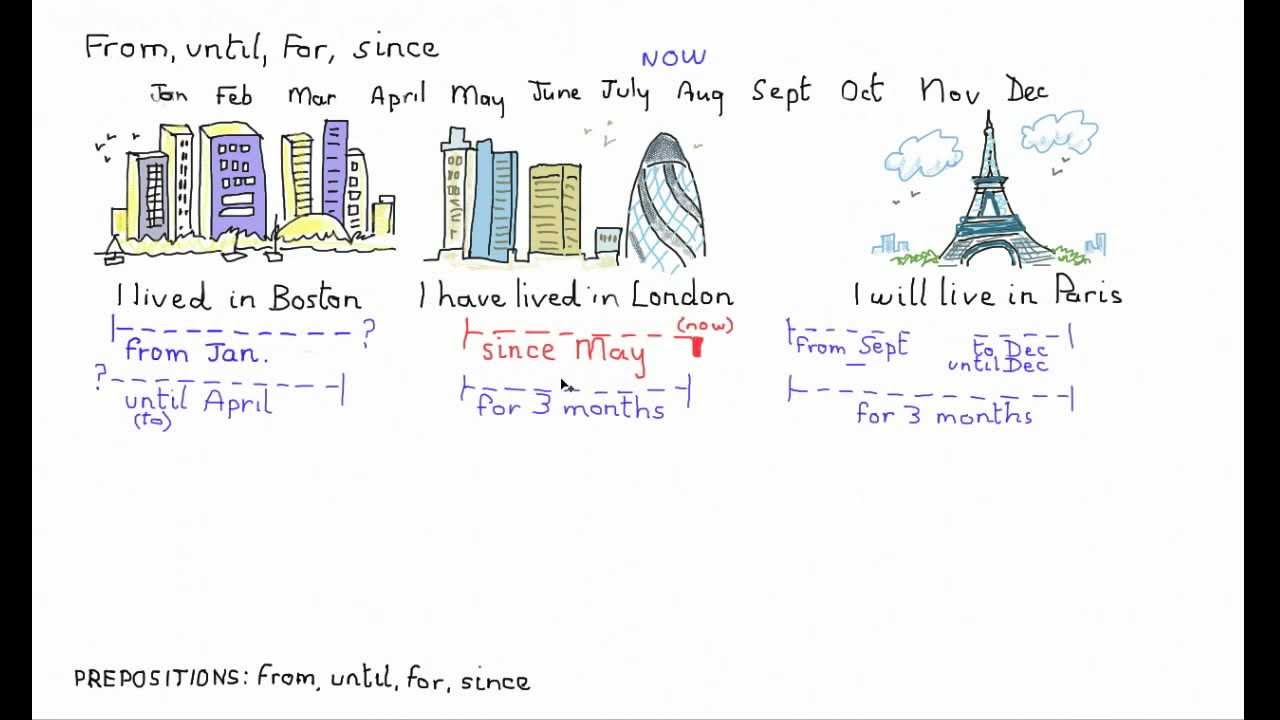 From, until, For, since
NOW
Jan Feb Mar April May June July Aug Sept Oct Nov Dec
I lived in Boston
I have lived in London
I will live in Paris
?
from Jan.
?
until April
(to)
(now)
since May
for 3 months
from Sept
to Dec
until Dec
for 3 months
PREPOSITIONS: from, until, for, since